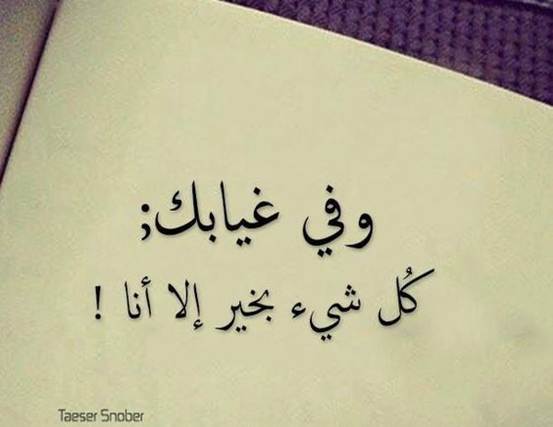 وفي غيابك;
كُل شيء بخير إلا أنا !
Taeser Snober